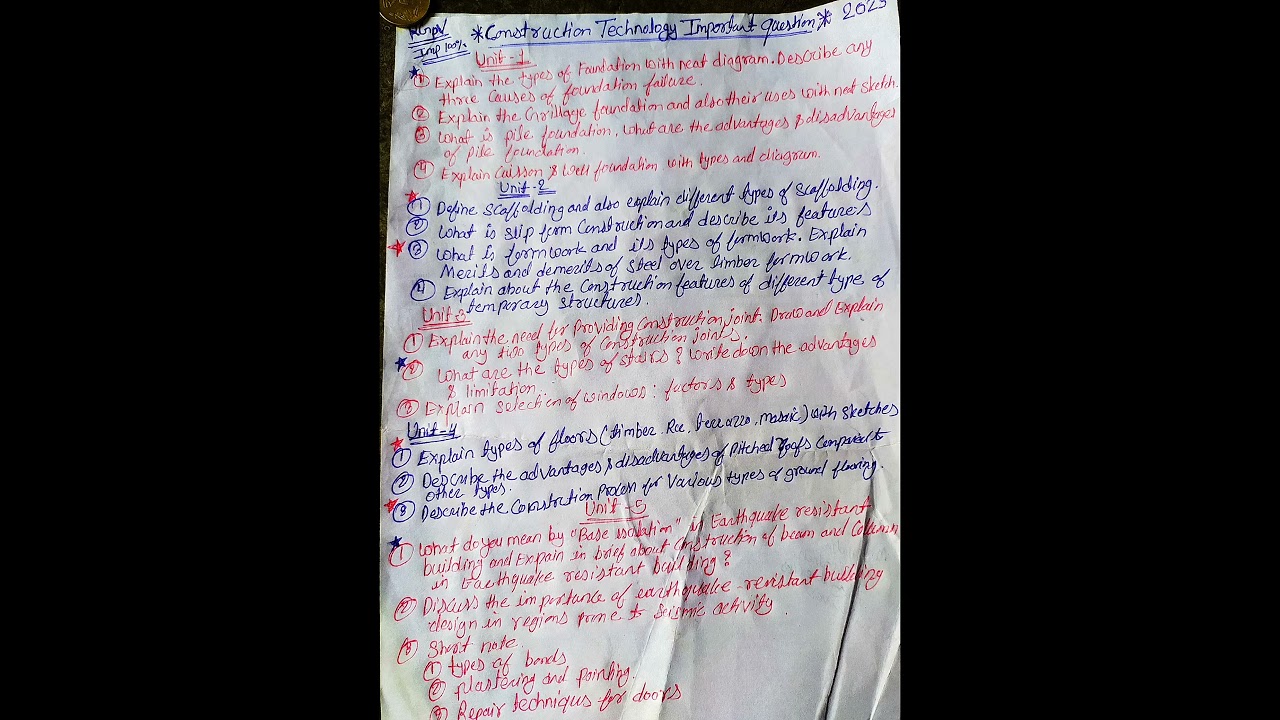 RGNPV
Imp 100%
*Construction Technology Important Question* 2025
Unit-1
① Explain the types of Foundation with neat diagram. Describe any
three Causes of foundation failure.
② Explain the Grillage foundation and also their uses with neat sketch.
③ What is pile foundation, what are the advantages & disadvantages
of pile foundation.
④ Explain Caisson & Well foundation with types and diagram.
Unit-2
① Define Scaffolding and also explain different types of Scaffolding.
② What is slip form Construction and describe its features
③ What is formwork and its types of formwork. Explain
Merits and demerits of Steel over timber formwork.
④ Explain about the Construction features of different type of
temporary structures.
Unit-3
① Explain the need for Providing Construction joint. Draw and Explain
any two types of Construction joints.
② What are the types of stairs? Write down the advantages
& limitation.
③ Explain Selection of windows: factors & types
Unit-4
① Explain types of floors (timber, Rcc, terrazzo, Mosaic) with sketches
② Describe the advantages & disadvantages of Pitched roofs Compared to
other types.
③ Describe the Construction Process for Various types of ground flooring.
Unit-5
① What do you mean by "Base isolation" in Earthquake resistant
building and Expain in brief about Construction of beam and Column
in Earthquake resistant building?
② Discuss the importance of earthquake-resistant building
design in regions prone to seismic activity.
③ Short note
① types of bonds
② plastering and pointing.
③ Repair techniqus for doors